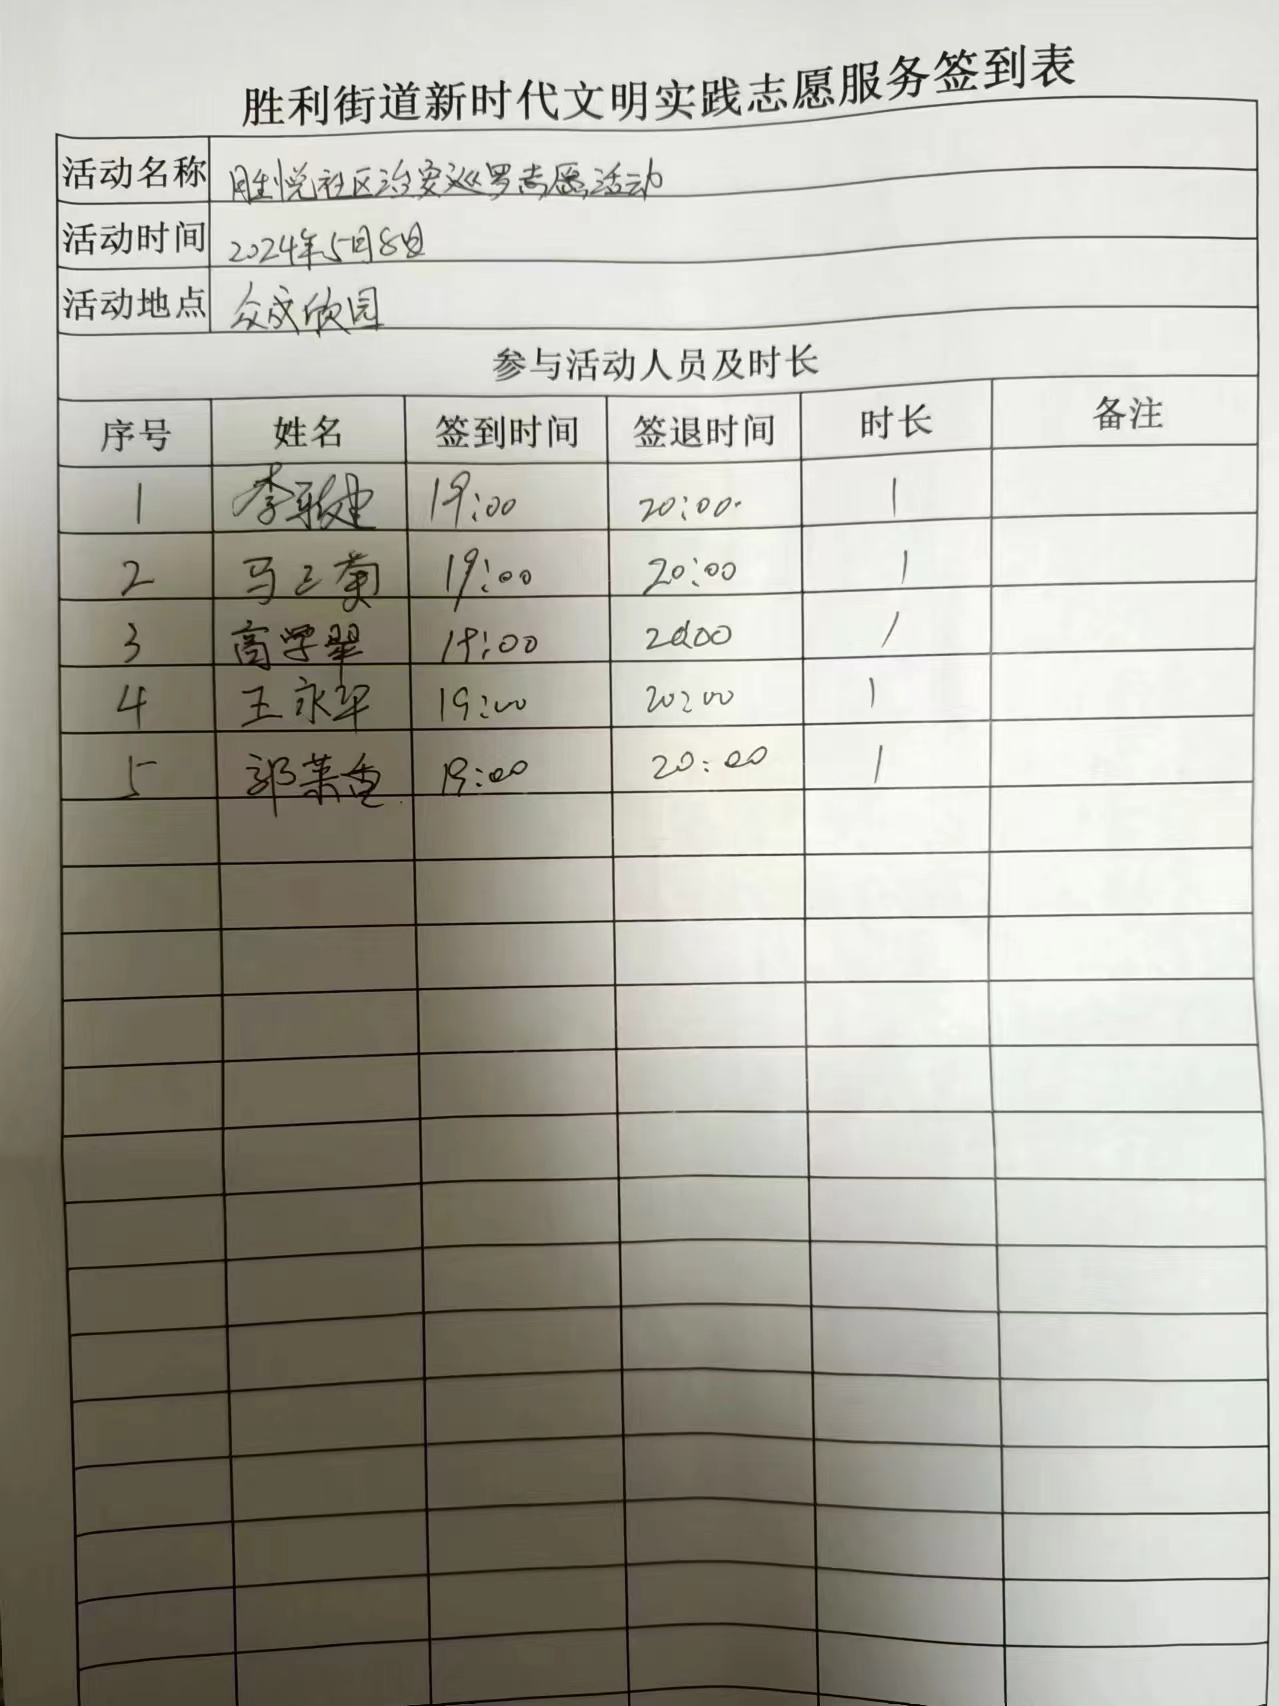 胜利街道新时代文明实践志愿服务签到表
活动名称 胜悦社区治安巡罗志愿活动
活动时间 2024年5月8日
活动地点 众成欣园
参与活动人员及时长
序号 姓名 签到时间 签退时间 时长 备注
1 李 19:00 20:00 1
2 马三菊 19:00 20:00 1
3 商学翠 19:00 20:00 1
4 王永华 19:00 20:00 1
5 郭英 19:00 20:00 1